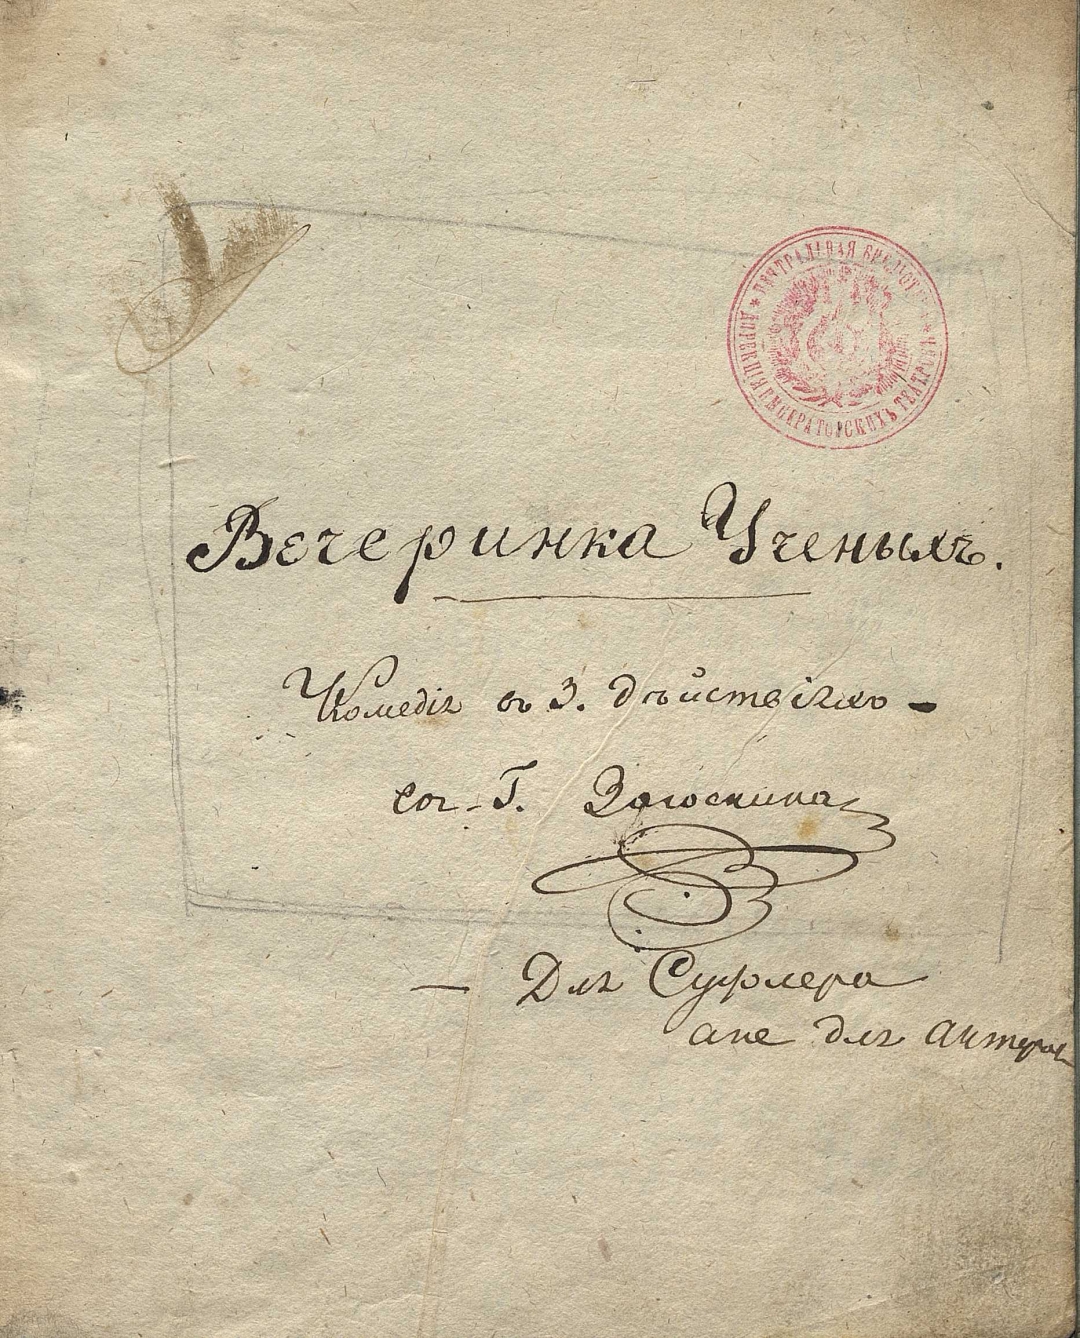 ЦЕНТРАЛЬНАЯ БИБЛІОТЕКА
ДИРЕКЦІЯ ИМПЕРАТОРСКИХЪ ТЕАТРОВЪ
Вечеринка Ученыхъ.
Комедія въ 3. дѣйствіяхъ –
соч. Г. Загоскина
– Для Суфлера
а не для актеровъ